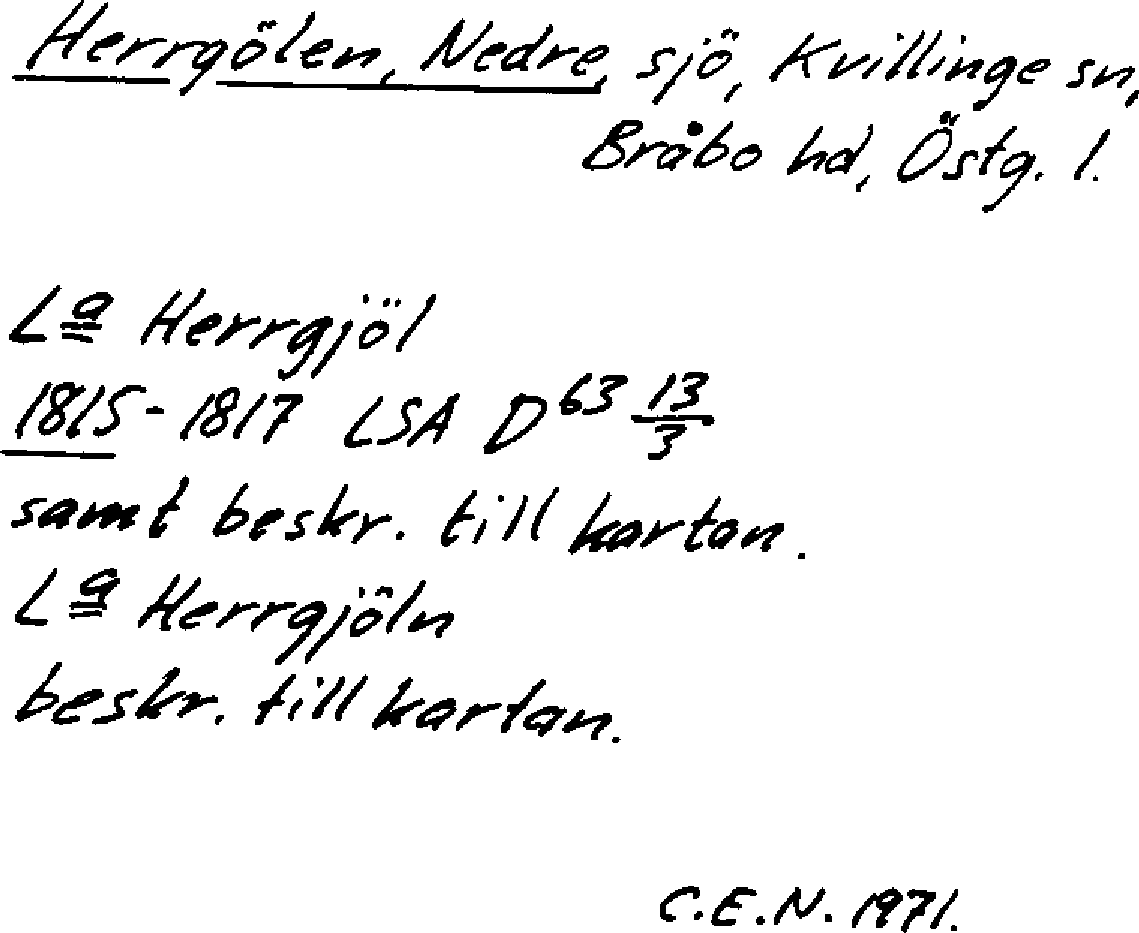 Herrgölen, Nedre, sjö, Kvillinge sn,
Bråbo hd, Östg. l.
Lª Herrgjöl
1815-1817 LSA D⁶³ 13/3
samt beskr. till kartan.
Lª Herrgjöln
beskr. till kartan.
C.E.N. 1971.